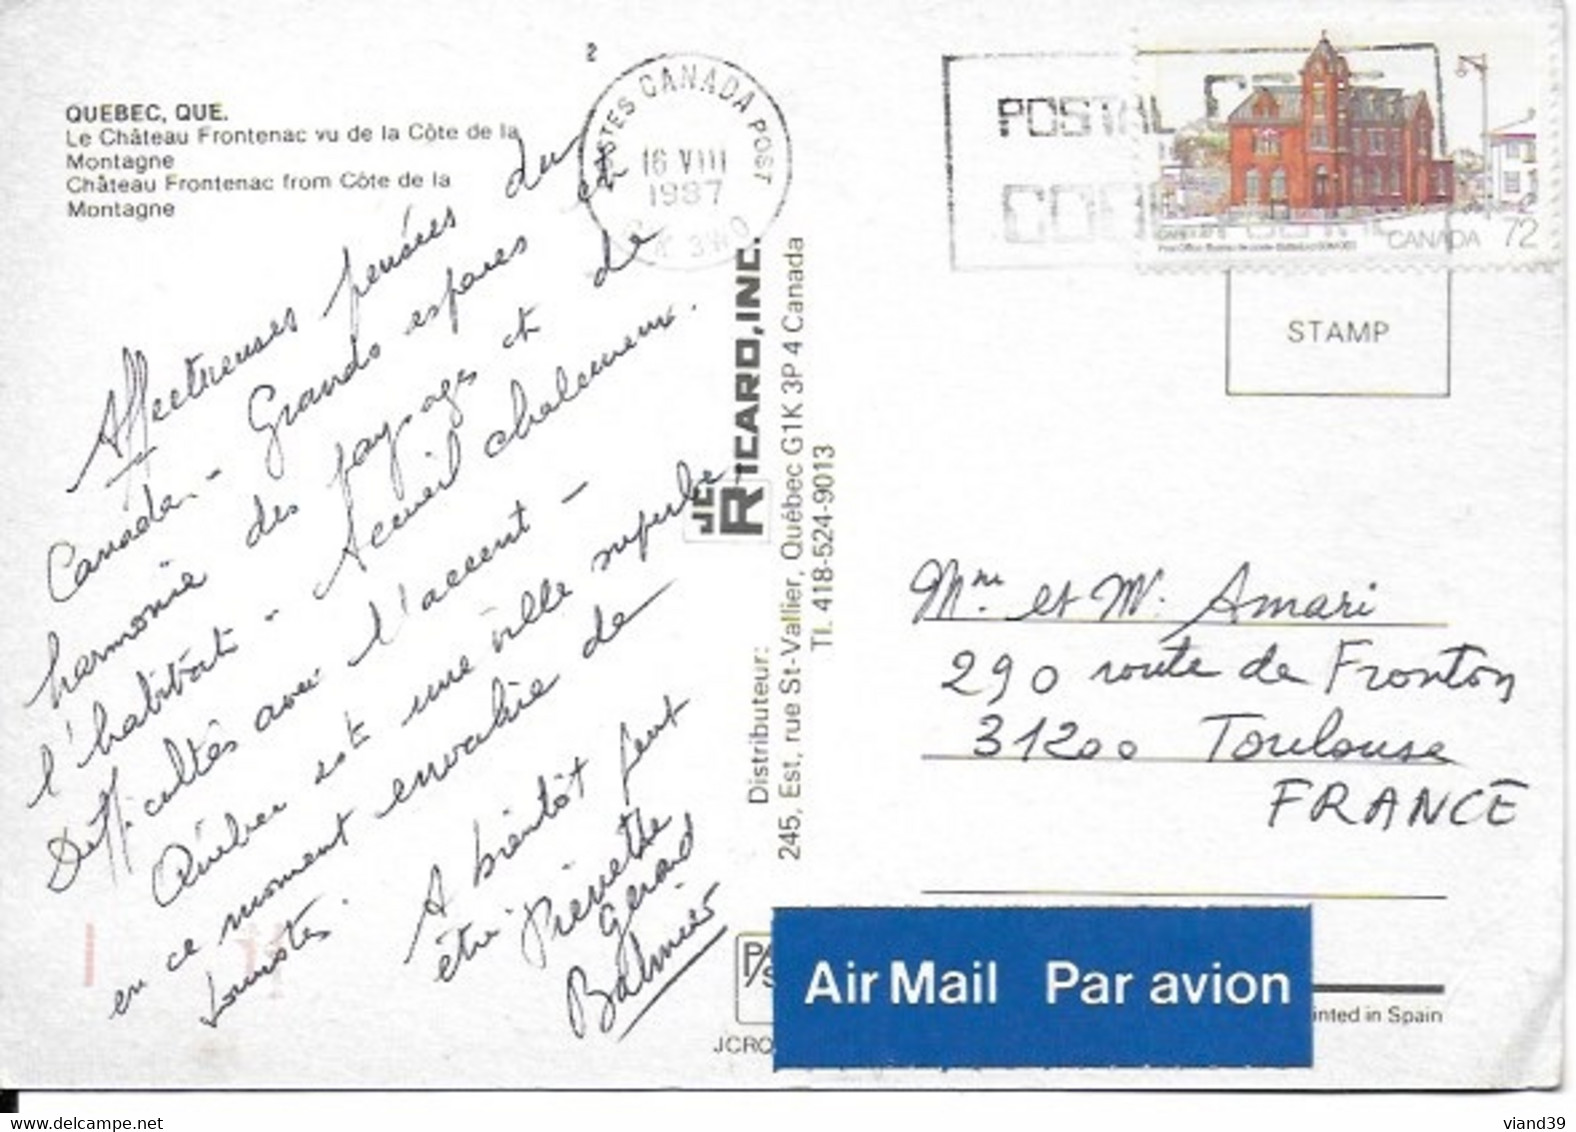 QUEBEC, QUE.
Le Château Frontenac vu de la Côte de la
Montagne
Château Frontenac from Côte de la
Montagne
Affectueuses pensées du
Canada - Grands espaces et
harmonie des paysages et de
l'habitat - Accueil chaleureux.
Difficultés avec l'accent -
Québec est une ville superbe
en ce moment envahie de
touristes.
A bientôt peut
être
Pierrette
Gerard
Balmier
2
POSTES CANADA POST
16 VIII
1987
POSTAL CODE
CANADA 72
STAMP
JC RICARD, INC.
Distributeur:
245, Est, rue St-Vallier, Québec G1K 3P 4 Canada
Tl. 418-524-9013
Mme et M. Amari
290 route de Fronton
31200 Toulouse
FRANCE
Air Mail Par avion
inted in Spain
P/S
JCRO
viand39